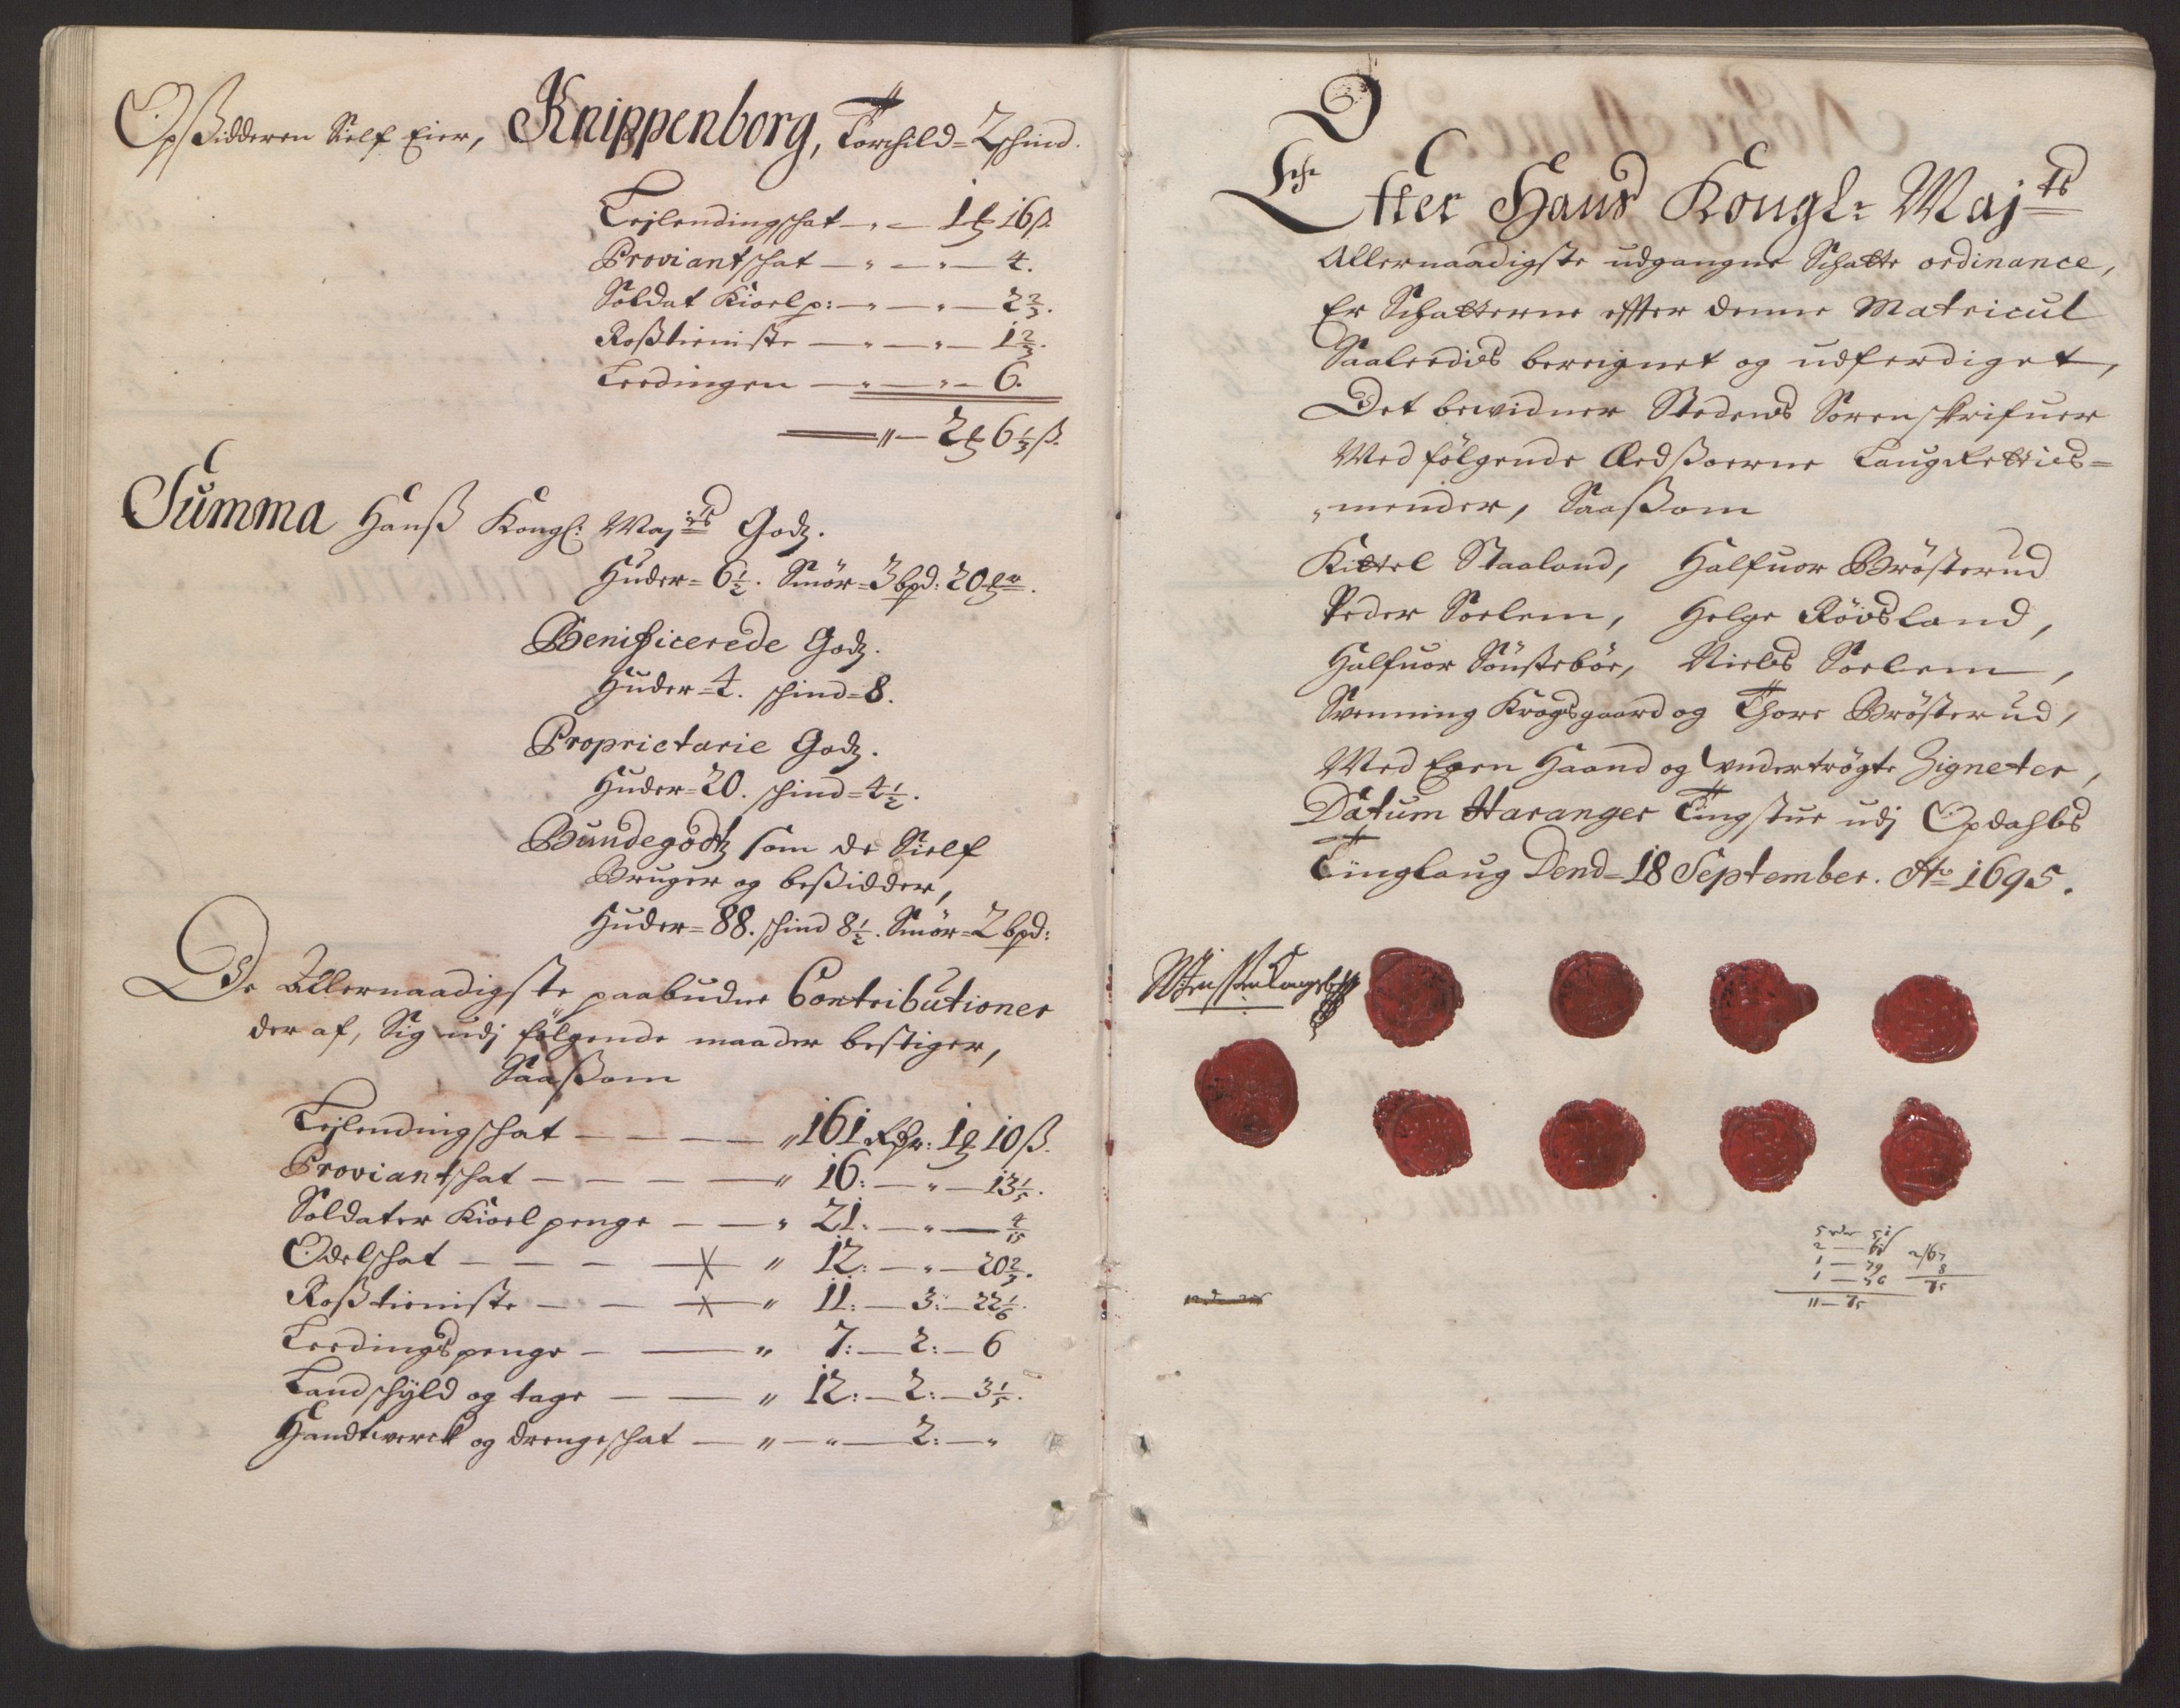 Opsidderen Sielf Eier, Knippenborg, Torchild = 2 schind.
Leilendingschat — 1 ℔ 16 ß.
Proviantschat — " — " — 4.
Soldat Kioelp: — " — " — 2 2/3.
Roßtieniste — " — " — 1 2/3.
Leedingen — " — " — 6.
" — 2 ℔ 6 1/3 ß.
Summa Hanß Kongl: Maj:ts Godz.
Huder = 6 1/2. Smör = 3 bpd: 20 ℔r.
Benificerede Godz.
Huder = 4. schind = 8.
Proprietarie Godz.
Huder = 20. schind = 4 1/2.
Bundegodtz som de Sielf
Bruger og beßidder,
Huder = 88. schind 8 1/2. Smör = 2 bpd:
De Allernaadigste paabudne Contributioner
der af, Sig udj fölgende maader bestiger,
Saaßom
Leilendingschat — — — — " 161 Rdr: 1 ℔ 10 ß.
Proviantschat — — — — " 16: — " — 13 1/5.
Soldater Kioelpenge — — " 21: — " — 4/15
Odelschat — — — — " 12: — " — 20 2/3.
Roßtieniste — — — " 11: — 3: — 22 1/6.
Leedings penge — — " 7: — 2: — 6
Landschyld og tage — — " 12: — 2: — 3 1/5.
Handtwerck og drengeschat — " — " — 2: — "
Effter Hans Kongl: Maj:ts
Allernaadigste udgangne Schatte ordinance,
Er Schatterne effter denne Matricul
Saaleedis bereignet og udferdiget,
Det bewidner Stedens Sorenskrifuer
Med fölgende Ædßoerne Laugrettis=
"mender, Saaßom
Kittel Staaland, Halfuor Bröstrud
Peder Soelem, Helge Röisland,
Halfuor Sönsteböe, Niels Soelem,
Svenning Krogsgaard og Thore Brösterud,
Med Egen Haand og undertrögte Zigneter,
Datum Haranger Tingstue udj Opdahls
Tinglaug Dend = 18 September. Ao 1695.
2 —
1 — 79
1 — 76
11 — 75
8
75